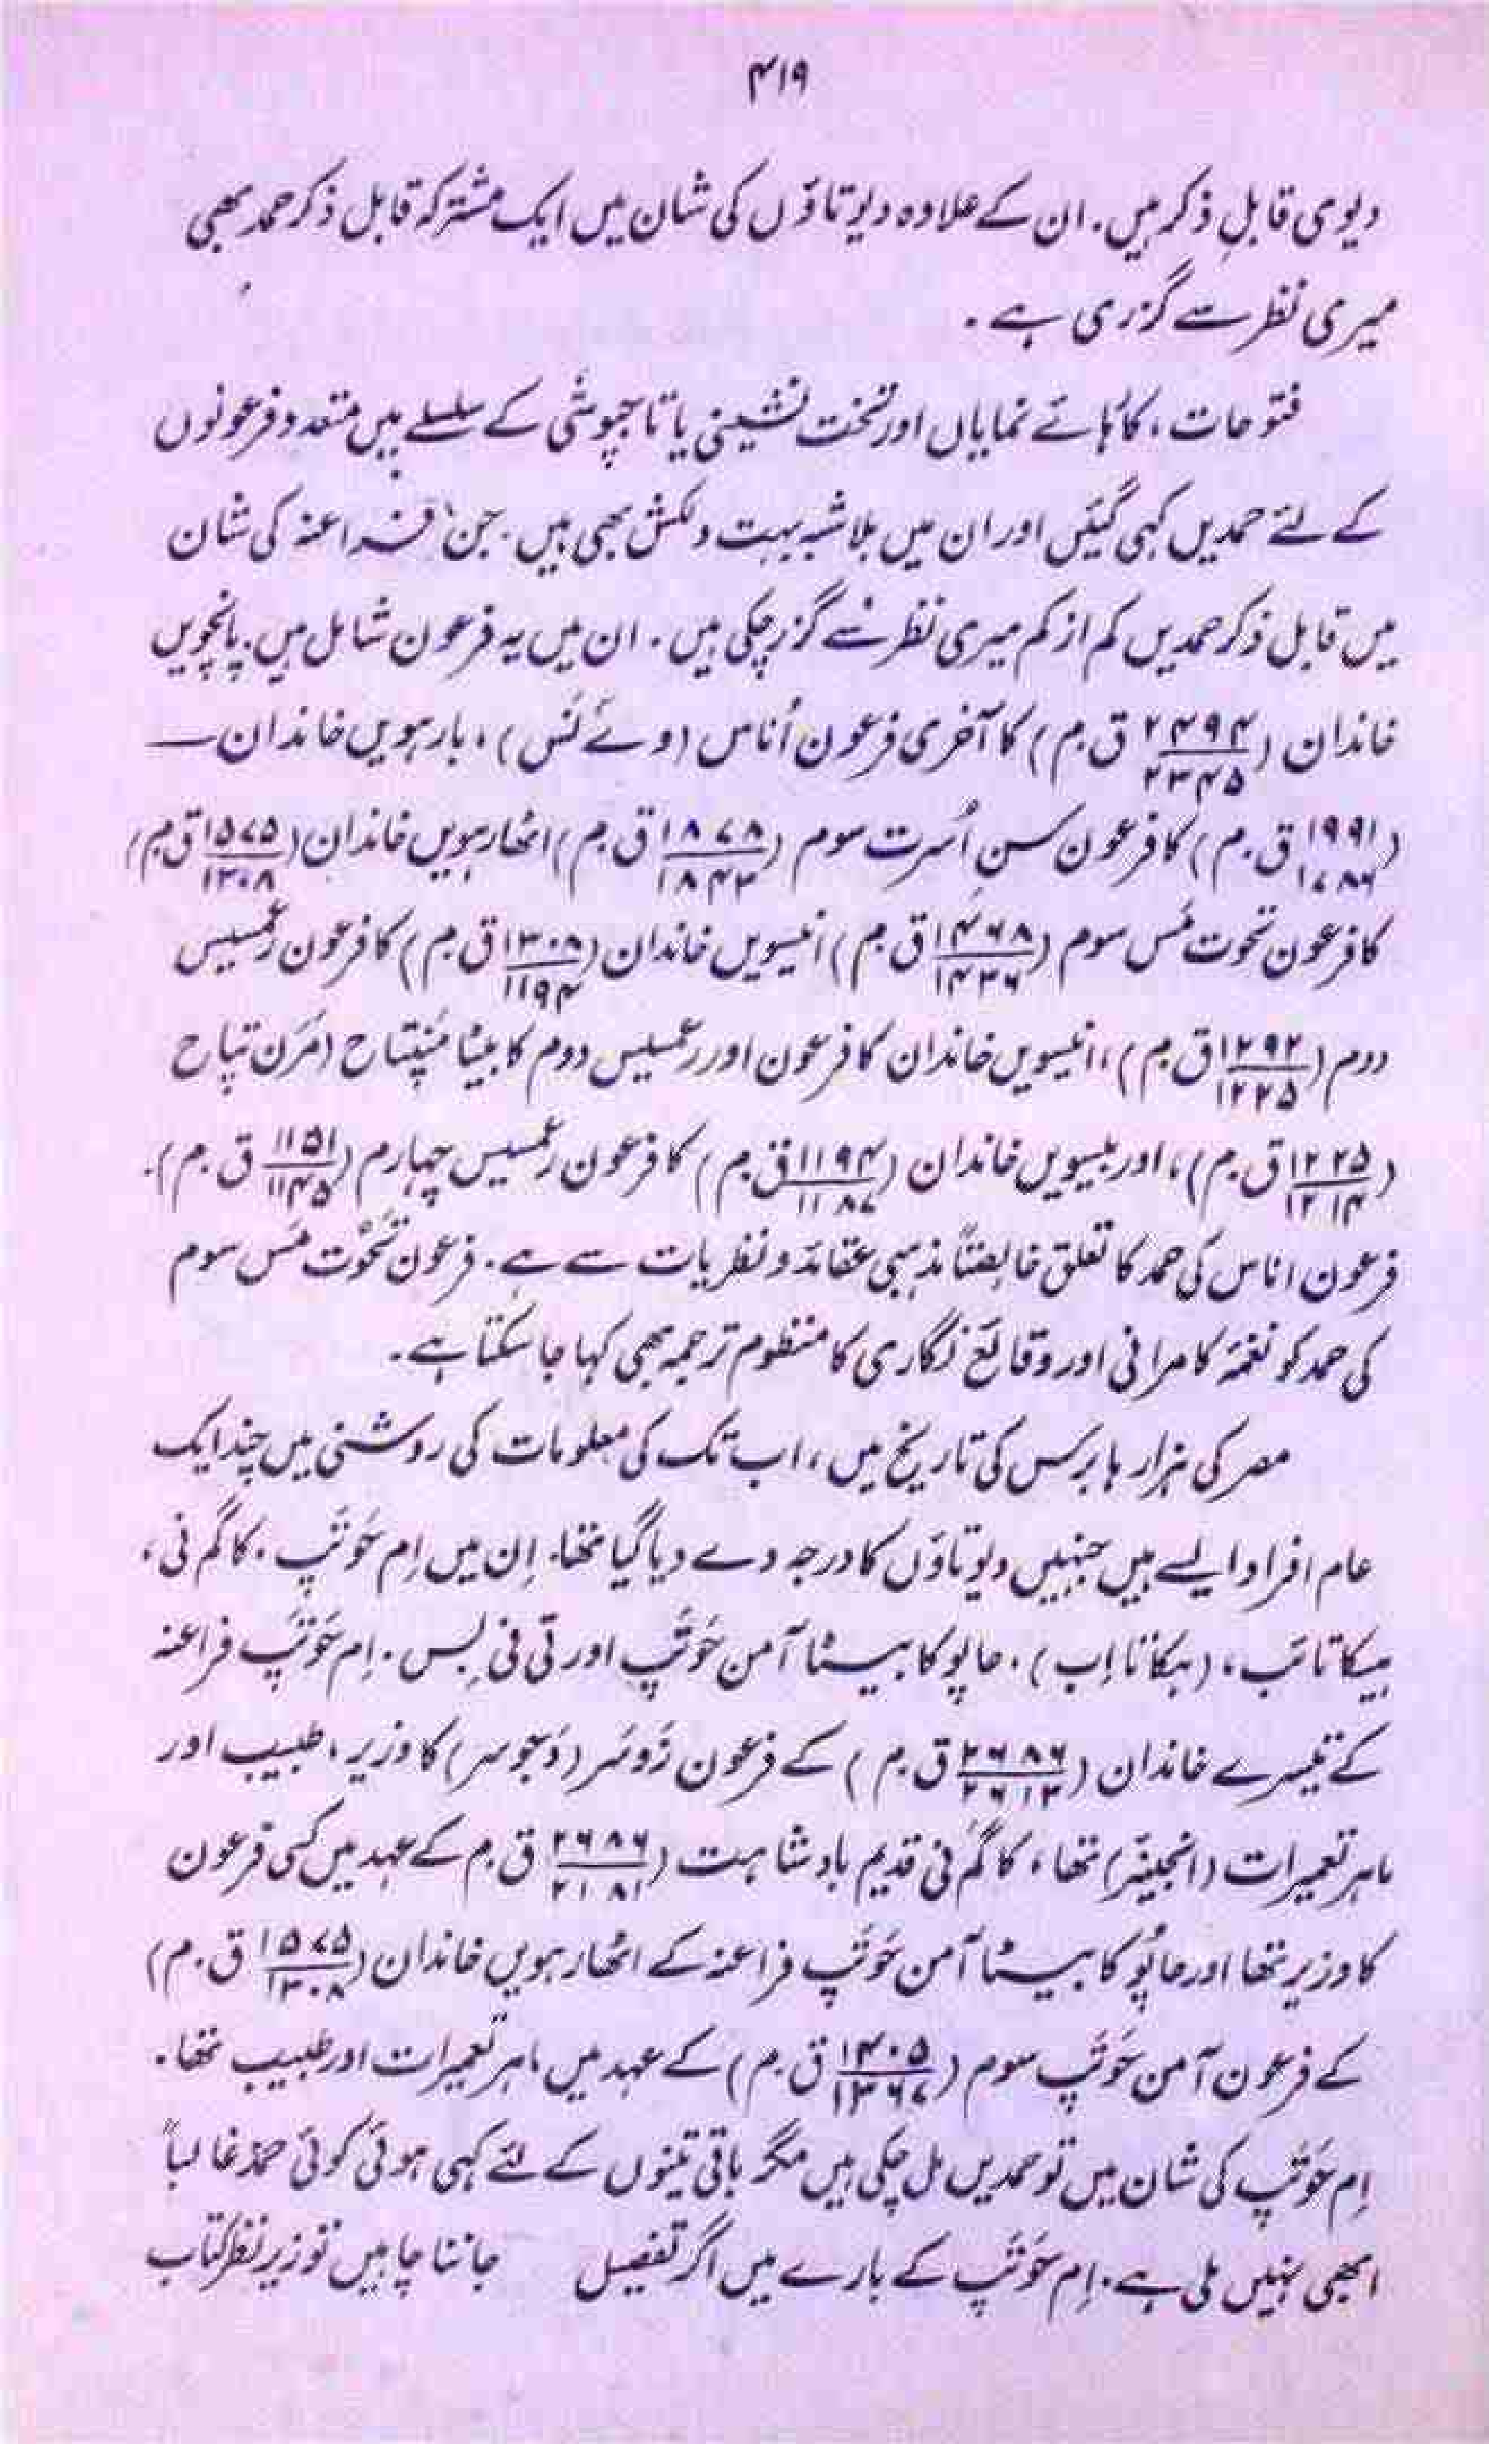 ۴۱۹
دیوی قابلِ ذکر ہیں. ان کے علاوہ دیوتاؤں کی شان میں ایک مشترکہ قابل ذکر حمد بھی
میری نظر سے گزری ہے.
فتوحات، کارہائے نمایاں اور تخت نشینی یا تاجپوشی کے سلسلے میں متعدد فرعونوں
کے لئے حمدیں کہی گئیں اور ان میں بلاشبہ بہت دلکش بھی ہیں. جن فراعنہ کی شان
میں قابل ذکر حمدیں کم از کم میری نظر سے گزر چکی ہیں. ان میں یہ فرعون شامل ہیں. پانچویں
خاندان (۲۴۹۴/۲۳۴۵ ق.م) کا آخری فرعون اُناس (وئے نَس)، بارہویں خاندان —
(۱۹۹۱/۱۷۸۶ ق.م) کا فرعون سن اُسرت سوم (۱۸۷۸/۱۸۴۳ ق.م) اٹھارہویں خاندان (۱۵۷۵/۱۳۰۸ ق.م)
کا فرعون تحوت مَس سوم (۱۴۶۸/۱۴۳۶ ق.م) انیسویں خاندان (۱۳۰۸/۱۱۹۴ ق.م) کا فرعون رعمسیس
دوم (۱۲۹۲/۱۲۲۵ ق.م)، انیسویں خاندان کا فرعون اور رعمسیس دوم کا بیٹا مَنِپتاح (مَرَن تپاح
(۱۲۲۵/۱۲۱۴ ق.م)، اور بیسویں خاندان (۱۱۹۴/۱۱۸۷ ق.م) کا فرعون رعمسیس چہارم (۱۱۵۱/۱۱۴۵ ق.م).
فرعون اناس کی حمد کا تعلق خالصتاً مذہبی عقائد و نظریات سے ہے. فرعون تحُوت مَس سوم
کی حمد کو نغمۂ کامرانی اور وقائع نگاری کا منظوم ترجمہ بھی کہا جا سکتا ہے.
مصر کی ہزارہا برس کی تاریخ میں، اب تک کی معلومات کی روشنی میں چند ایک
عام افراد ایسے ہیں جنہیں دیوتاؤں کا درجہ دے دیا گیا تھا. اِن میں اِم حَوتَپ، کاگم نی،
ہیکاتائب، (ہکانا اِب)، حاپو کا بیٹا آمن حَوتَپ اور تی فی بِس. اِم حَوتَپ فراعنہ
کے تیسرے خاندان (۲۶۸۶/۲۶۱۳ ق.م) کے فرعون زَوسَر (دَجوسر) کا وزیر، طبیب اور
ماہر تعمیرات (انجینئر) تھا، کاگم نی قدیم بادشاہت (۲۶۸۶/۲۱۸۱ ق.م کے عہد میں کسی فرعون
کا وزیر تھا اور حاپُو کا بیٹا آمن حَوتَپ فراعنہ کے اٹھارہویں خاندان (۱۵۷۵/۱۳۰۸ ق.م)
کے فرعون آمن حَوتَپ سوم (۱۴۰۵/۱۳۶۷ ق.م) کے عہد میں ماہر تعمیرات اور طبیب تھا.
اِم حَوتَپ کی شان میں تو حمدیں مل چکی ہیں مگر باقی تینوں کے لئے کہی ہوئی کوئی حمد غالباً
ابھی نہیں ملی ہے. اِم حَوتَپ کے بارے میں اگر تفصیل جاننا چاہیں تو زیر نظر کتاب